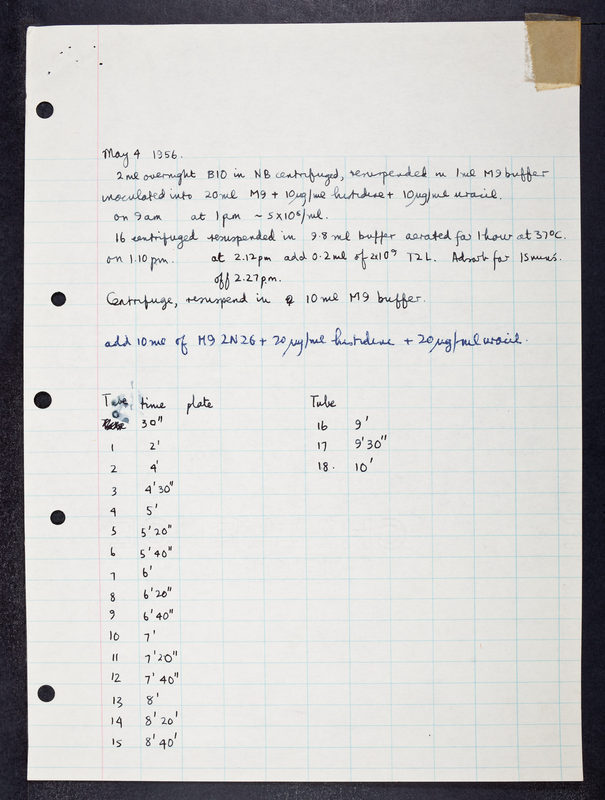 May 4 1956.
2 ml overnight B10 in NB centrifuged, resuspended in 1 ml M9 buffer
inoculated into 20 ml M9 + 10 µg/ml histidine + 10 µg/ml uracil.
on 9 am at 1 pm ~ 5x10⁸/ml.
16 centrifuged resuspended in 9.8 ml buffer aerated for 1 hour at 37°C.
on 1.10 pm. at 2.12 pm add 0.2 ml of 2x10⁹ T2L. Adsorb for 15 mins.
off 2.27 pm.
Centrifuge, resuspend in 10 ml M9 buffer.
add 10 ml of M9 2N26 + 20 µg/ml histidine + 20 µg/ml uracil.
Tube time plate Tube
30" 16 9'
1 2' 17 9'30"
2 4' 18. 10'
3 4'30"
4 5'
5 5'20"
6 5'40"
7 6'
8 6'20"
9 6'40"
10 7'
11 7'20"
12 7'40"
13 8'
14 8'20'
15 8'40'